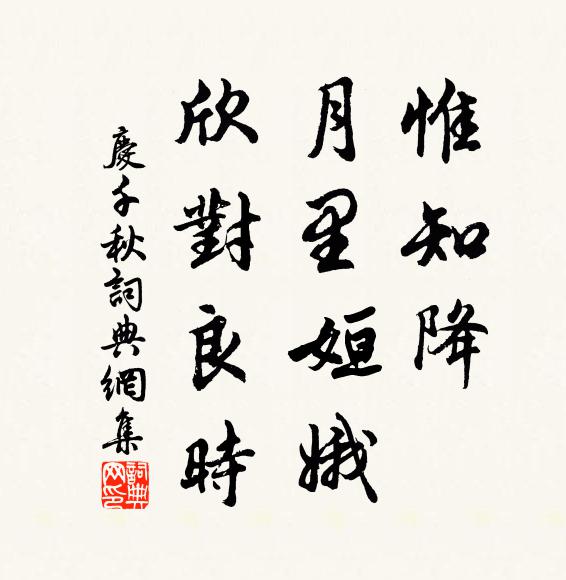 惟知降
月里姮娥
欣對良時
慶千秋詞典網集
詞典
网印